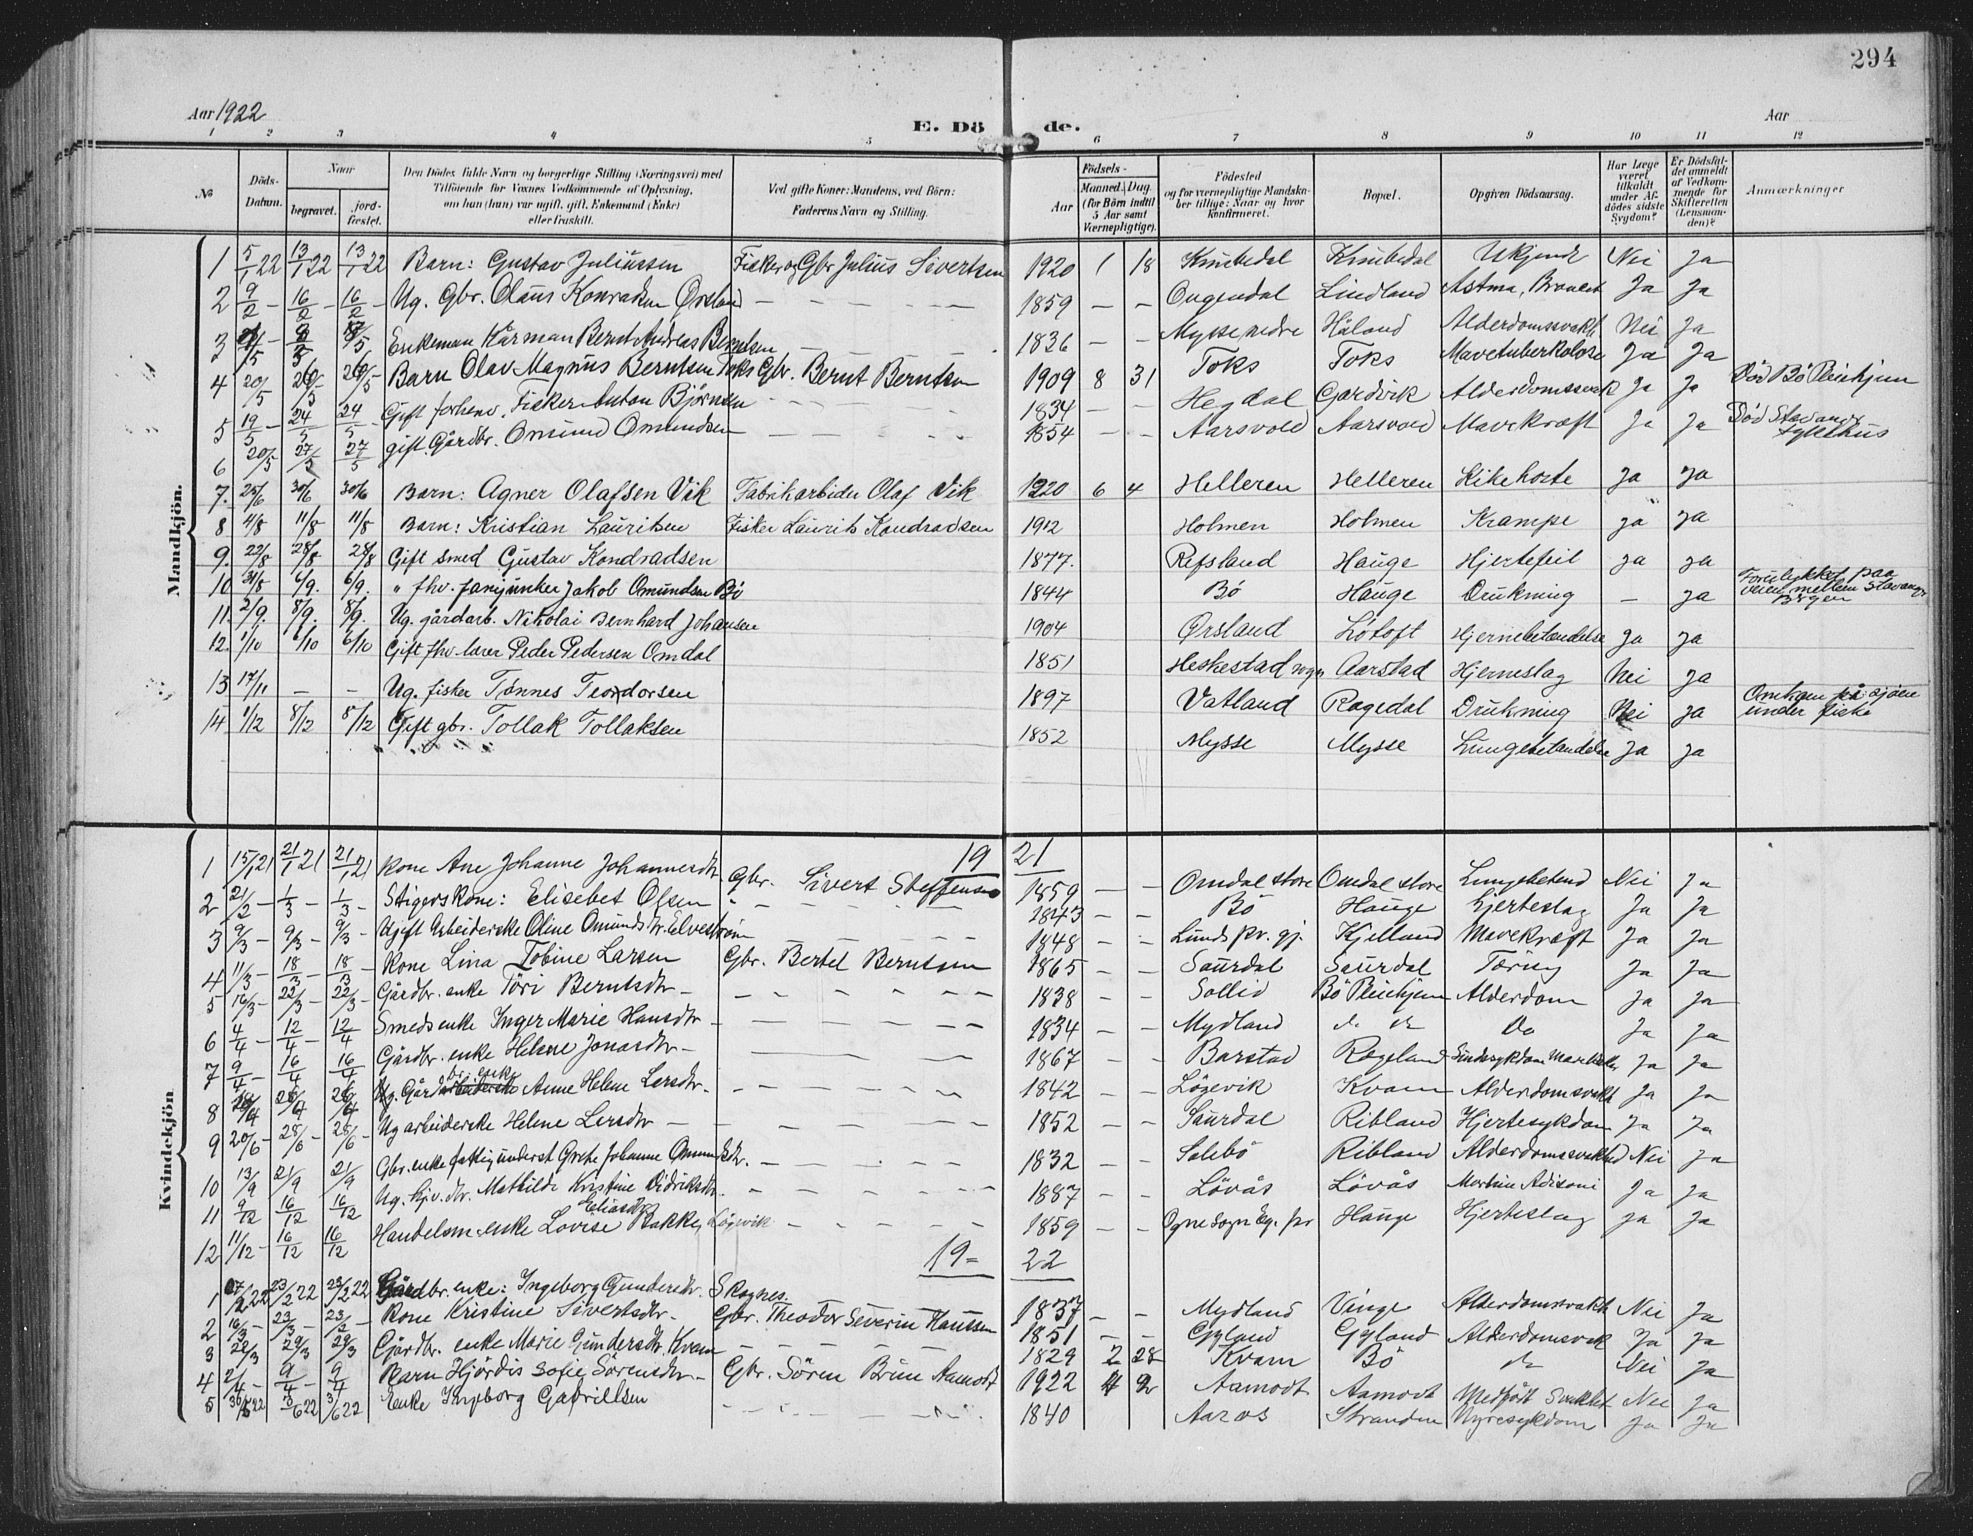 294
Aar 1922 E. Dö de. Aar
1 2 3 4 5 6 7 8 9 10 11 12
No Döds-Datum. Naar begravet. jord-fæstet. Den Dödes fulde Navn og borgerlige Stilling (Næringsvei) med Tilföiende for Voxnes Vedkommende af Oplysning, om han (hun) var ugift, gift, Enkemand (Enke) eller fraskilt. Ved gifte Koner: Mandens, ved Börn: Faderens Navn og Stilling. Födsels- Aar Maaned. Dag. (for Börn indtil 5 Aar samt Værnepligtige). Födested og for værnepligtige Mandskaber tillige: Naar og hvor konfirmeret. Bopæl. Opgiven Dödsaarsag. Har Læge været tilkaldt under Afdödes sidste Sygdom? Er Dödsfaldet anmeldt af Vedkommende for Skifteretten (Lensmanden)? Anmærkninger
Mandkjön.
1 5/1 22 13/1 22 13/1 22 Barn: Gustav Juliussen Fisker og Gbr Julius Sivertsen 1920 1 18 Knubedal Knubedal Ukjendt Nei Ja
2 9/2 - 16/2 - 16/2 - Ug. Gbr. Olaus Konradsen Ørsland — 1859 — — Ougendal Lindland Astma, Ja Ja
3 Enkeman Kårman Bernt Andreas Berntsen 1836 — — Mysse nedre Håland Alderdomssvakh. Nei Ja
4 20/5 26/5 26/5 Barn Olav Magnus Berntsen Toks Gbr. Bernt Berntsen 1909 8 31 Toks Toks Mavetuberkolose Ja Ja Död Bö Pleiehjem
5 19/5 - 24/5 24/5 Gift forhenv. Fisker Anton Björnsen 1834 — — Hegdal Gardvik Alderdomssvak Ja Ja
6 20/5 27/5 27/5 gift. Gårdbr. Omund Omundsen 1854 — — Aarsvold Aarsvold Mavekræft Ja Ja Död Stavanger sykehus
7. 25/6 30/6 30/6 Barn: Agner Olafsen Vik Fabrikarbider Olaf Vik 1920 6 4 Helleren Helleren Kikehoste Ja Ja
8 4/8 11/8 11/8 Barn: Kristian Lauritsen Fisker Laurits Kondradsen 1912 Holmen Holmen Krampe ja ja
9. 22/8 28/8 28/8 Gift smed Gustav Kondradsen 1877. Refsland Hauge Hjertefeil ja ja
10 31/8 6/9. 6/9. " fhv. fanejunker Jakob Omundsen Bö 1844 Bö Hauge Drukning — ja Forulykket paa veien mellem Stavanger Bergen
11. 2/9. 8/9. 8/9. Ug. gårdarb. Nikolai Bernhard Johansen 1904 Ørsland Lötoft Hjernebetændelse ja ja
12. 1/10 6/10 6/10 Gift fhv. lærer Peder Pedersen Omdal 1851 Heskestad sogn Aarstad Hjerneslag Nei ja
13 17/11 — — Ug. fisker Tønnes Teodorsen 1897 Vatland Rægedal Drukning Nei ja Omkom på sjøen under fiske
14. 1/12 8/12 8/12 Gift gbr. Tollak Tollaksen 1852 Mysse Mysse Lungebetændelse ja ja
Kvindekjön
19 21
1 15/1 21 21/1 21 21/1 21 Kone Ane Johanne Johannesdtr. Gbr. Sivert Steffensen 1859 — — Omdal store Omdal store Lungebetend Nei Ja
2 21/2 - 1/3 - 1/3 - Stigerskone: Elisebet Olsen 1843 — — Bö Hauge Hjerteslag Ja Ja
3 9/3 - 9/3 - 9/3 - Ugift Arbeiderske Oline Omundsdtr. Elvestrøm 1848 — — Lunds pr. gj. Kjelland Mavekræft Ja Ja
4 11/3 - 18/3 - 18/3 - Kone Lina Tobine Larsen Gbr. Bertel Berntsen 1865 — — Saurdal Saurdal Tæring Ja Ja
5 16/3 - 22/3 - 22/3 - Gårdbr. enke Tori Berntsdtr. 1838 — — Sollid Bö Pleiehjem Alderdom Ja Ja
6 4/4 - 12/4 - 12/4 Smedsenke Inger Marie Hansdtr 1834 — — Mydland do do Do Ja Ja
7 9/4 - 16/4 16/4 Gårdbr. enke Helene Jonasdtr — 1867 — — Barstad Rægeland Ja Ja
8 Ug. Gårdbr. enke Anne Helene Larsdtr. 1842 — — Lögevik Kvam Alderdomsvakh Ja Ja
9 20/6 - 28/6 - 28/6 - Ug arbeiderske Helene Lersdtr 1852 — — Saurdal Ribland Hjertesykdom Ja Ja
10 13/9 21/9 21/9 Gbr. enke fattigunderst Grete Johanne Omundsdtr. 1832 — — Salebö Ribland Alderdomssvakhed Nei Ja
11 9/12 16/12 16/12 Ug. Mathilde Kristine Didriksdtr. 1887 — — Lövås Lövås Morbus Adisoni Ja Ja
12 11/12 16/12 16/12 Handelsm. enke Lovise Eliasdtr Bakke, Lögevik 1859 — — Ogne sogn Eg. pr Hauge Hjerteslag ja ja
19= 22
1 22 23/2 22 23/2 22 Gårdbr. enke: Ingeborg Gundersdtr. Skognes. 1837 — — Mydland Vinge Alderdomsvakh Nei Ja
2 16/3 - 23/3 - 23/3 - Kone Kristine Sivertsdtr. Gbr. Theodor Severin Hanssen 1851 — — Gyland Gyland Alderdomsvak Ja Ja
3 22/3 29/3 29/3 Gårdbr. enke Marie Gundersdtr. Kvam 1829 2 28 Kvam Bö do Nei Ja
4 2/4 - 9/4 - 9/4 Barn Hjördis Sofie Sörensdtr. Gbr. Sören Brun Aamodt 1922 4 2 Aamodt Aamodt Medfödt Svakhet Nei Ja
5 Enke Ingeborg Gabrillsen 1840 Aaros Stranden Nyresykdom Ja Ja